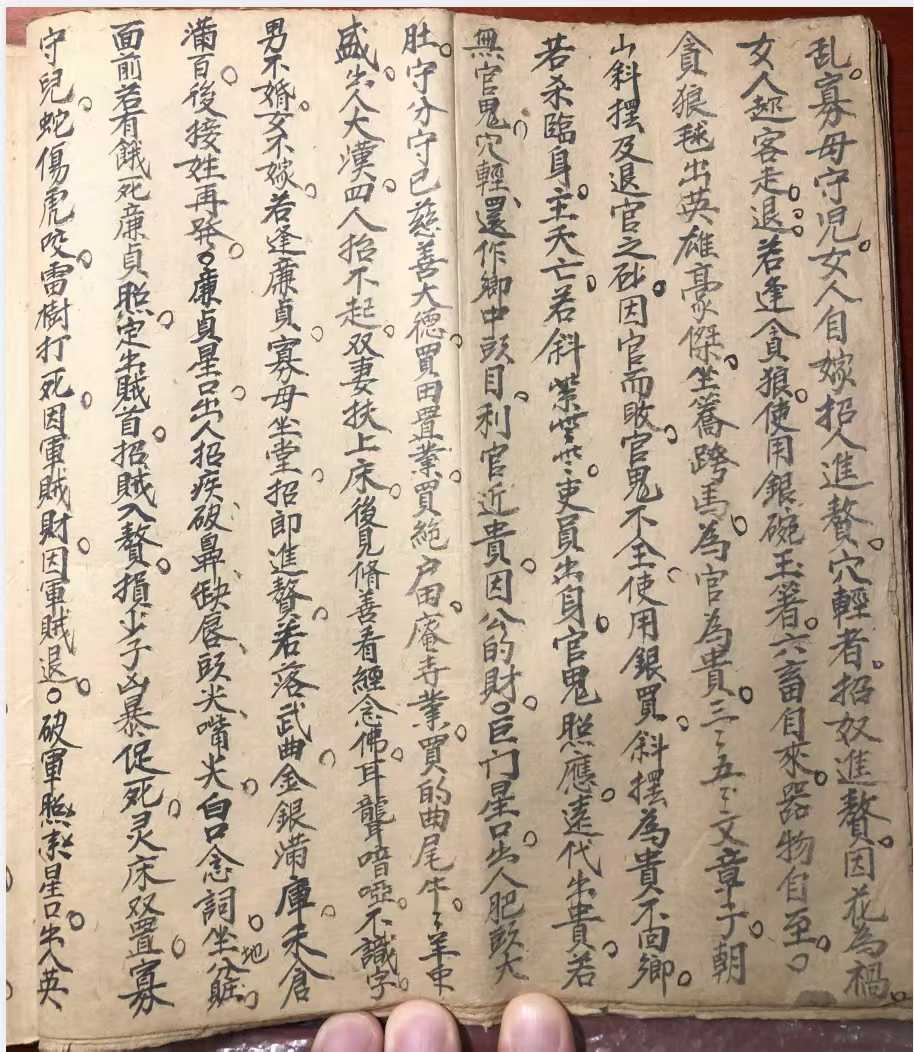 乱。寡母守児。女人自嫁招人進贅。穴輕者。招奴進贅。因花為禍。
女人起客走退。若逢貪狼。使用銀碗玉箸。六畜自來。器物自至。○
貪狼毬出英雄豪傑。坐蕎跨馬。為官為貴。三〻五〻文章子朝
山斜擺及退官之砂。因官而敗。官鬼不全。使用銀買。斜擺為貴不回鄉。
若杀臨身。主夭亡。若斜。吏員出身。官鬼照應。遠代出貴。若
無官鬼。穴輕。還作鄉中頭目。利官近貴。因公的財。○巨门星口。出人肥頭大
肚。守分守己。慈善大德。買田置業。買絶户田。庵寺業。買的曲尾牛〻羊
盛。出人大漢。四人抬不起。双妻扶上床。後見脩善看經念佛。耳聾喑啞。不識字
男不婚。女不嫁。若逢廉貞。寡母坐堂。招郎進贅。若落武曲。金銀滿庫。禾倉
滿百。後接姓再発。○廉貞星口。出人招疾。破鼻缺唇。頭尖嘴尖。白口念詞。坐地
面前若有餓死廉貞照。定出賊首。招賊入贅。損少子。凶暴促死。灵床双置。寡
守兒。蛇傷虎咬。雷樹打死。因軍賊財。因軍賊退。○破軍照星口。出人英